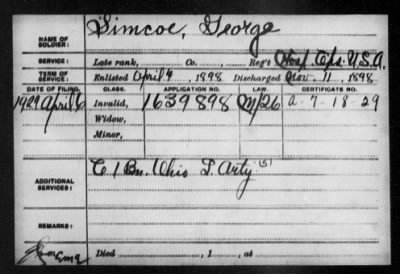 NAME OF SOLDIER: Simcoe, George
SERVICE: Late rank, Co. , Reg't Hosp. Cps. U.S.A.
TERM OF SERVICE: Enlisted April 9, 1898, Discharged Nov. 11, 1898
DATE OF FILING. CLASS. APPLICATION NO. LAW. CERTIFICATE NO.
1929 April 6 Invalid, 1639898 A-7-18-29
Widow,
Minor,
ADDITIONAL SERVICES: C 1 Bn. Ohio L. Arty (S)
REMARKS:
Died , 1 , at